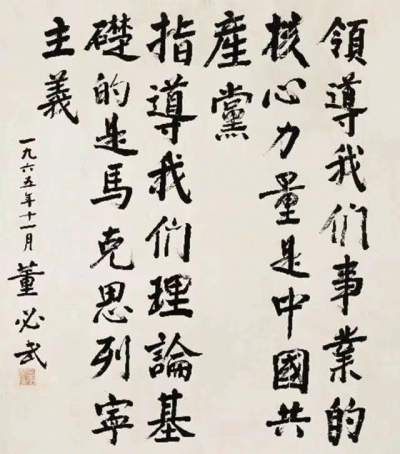 領導我们事業的
核心力量是中國共
產黨
指導我们理論基
礎的是馬克思列寧
主義
一九六五年十一月
董必武